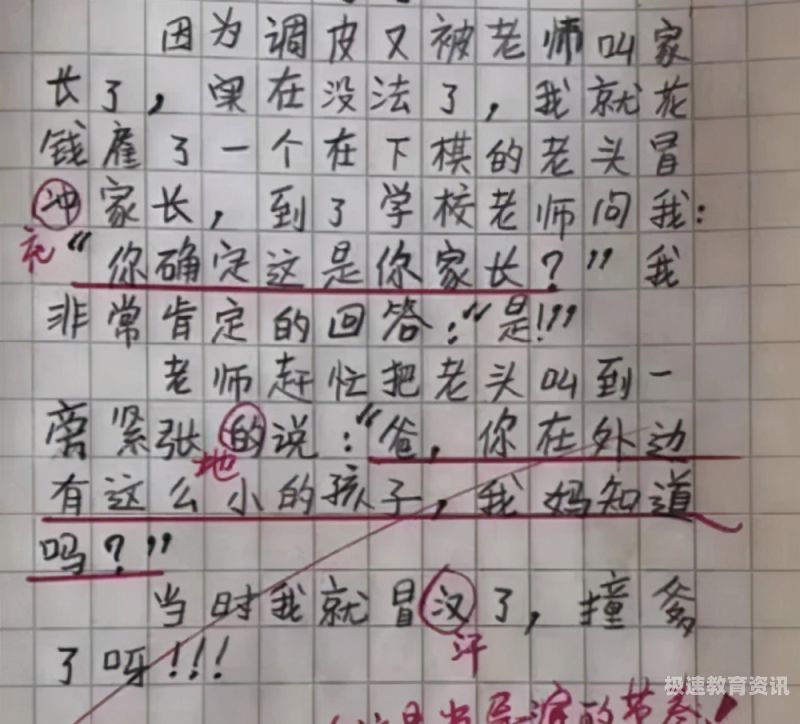 因为调皮又被老师叫家
长了，实在没法了，我就花
钱雇了一个在下棋的老头冒
冲家长，到了学校老师问我：
充
“你确定这是你家长？”我
非常肯定的回答：“是!”
老师赶忙把老头叫到一
旁紧张的说：“爸，你在外边
地
有这么小的孩子，我妈知道
吗？”
当时我就冒汉了，撞爹
汗
了呀!!!
极速教育资讯